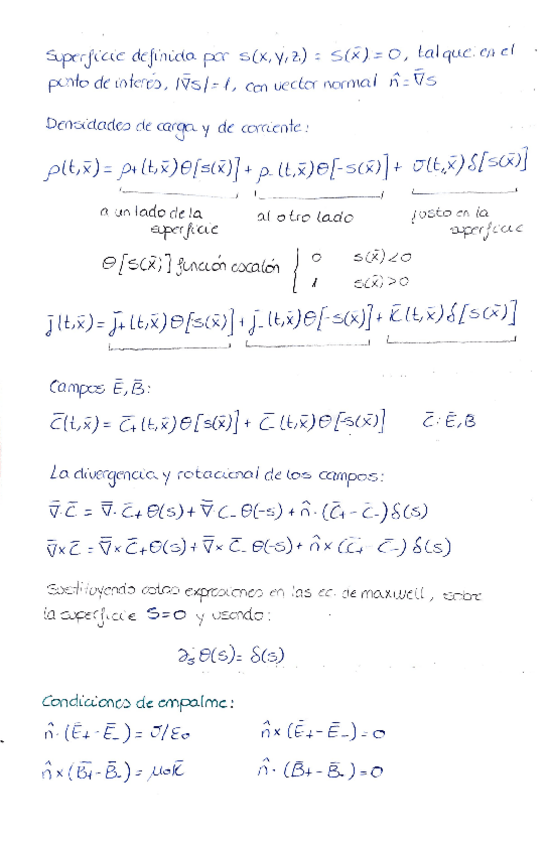 Superficie definida por s(x,y,z) = s(x̄) = 0, tal que en el
punto de interés, |∇̄s| = 1, con vector normal n̂ = ∇̄s
Densidades de carga y de corriente:
ρ(t,x̄) = ρ+(t,x̄)θ[s(x̄)] + ρ-(t,x̄)θ[-s(x̄)] + σ(t,x̄)δ[s(x̄)]
a un lado de la superficie
al otro lado
justo en la superficie
θ[s(x̄)] función escalón { 0 s(x̄)<0
1 s(x̄)>0
j̄(t,x̄) = j̄+(t,x̄)θ[s(x̄)] + j̄-(t,x̄)θ[-s(x̄)] + K̄(t,x̄)δ[s(x̄)]
Campos Ē, B̄:
C̄(t,x̄) = C̄+(t,x̄)θ[s(x̄)] + C̄-(t,x̄)θ[-s(x̄)] C̄: Ē,B
La divergencia y rotacional de los campos:
∇̄·C̄ = ∇̄·C̄+θ(s) + ∇̄C-θ(-s) + n̂·(C̄+ - C̄-)δ(s)
∇̄×C̄ = ∇̄×C̄+θ(s) + ∇̄×C̄-θ(-s) + n̂×(C̄+ - C̄-)δ(s)
Sustituyendo estas expresiones en las ec. de maxwell, sobre
la superficie S=0 y usando:
∂sθ(s) = δ(s)
Condiciones de empalme:
n̂·(Ē+ - Ē-) = σ/ε0 n̂×(Ē+ - Ē-) = 0
n̂×(B̄+ - B̄-) = μ0K̄ n̂·(B̄+ - B̄-) = 0